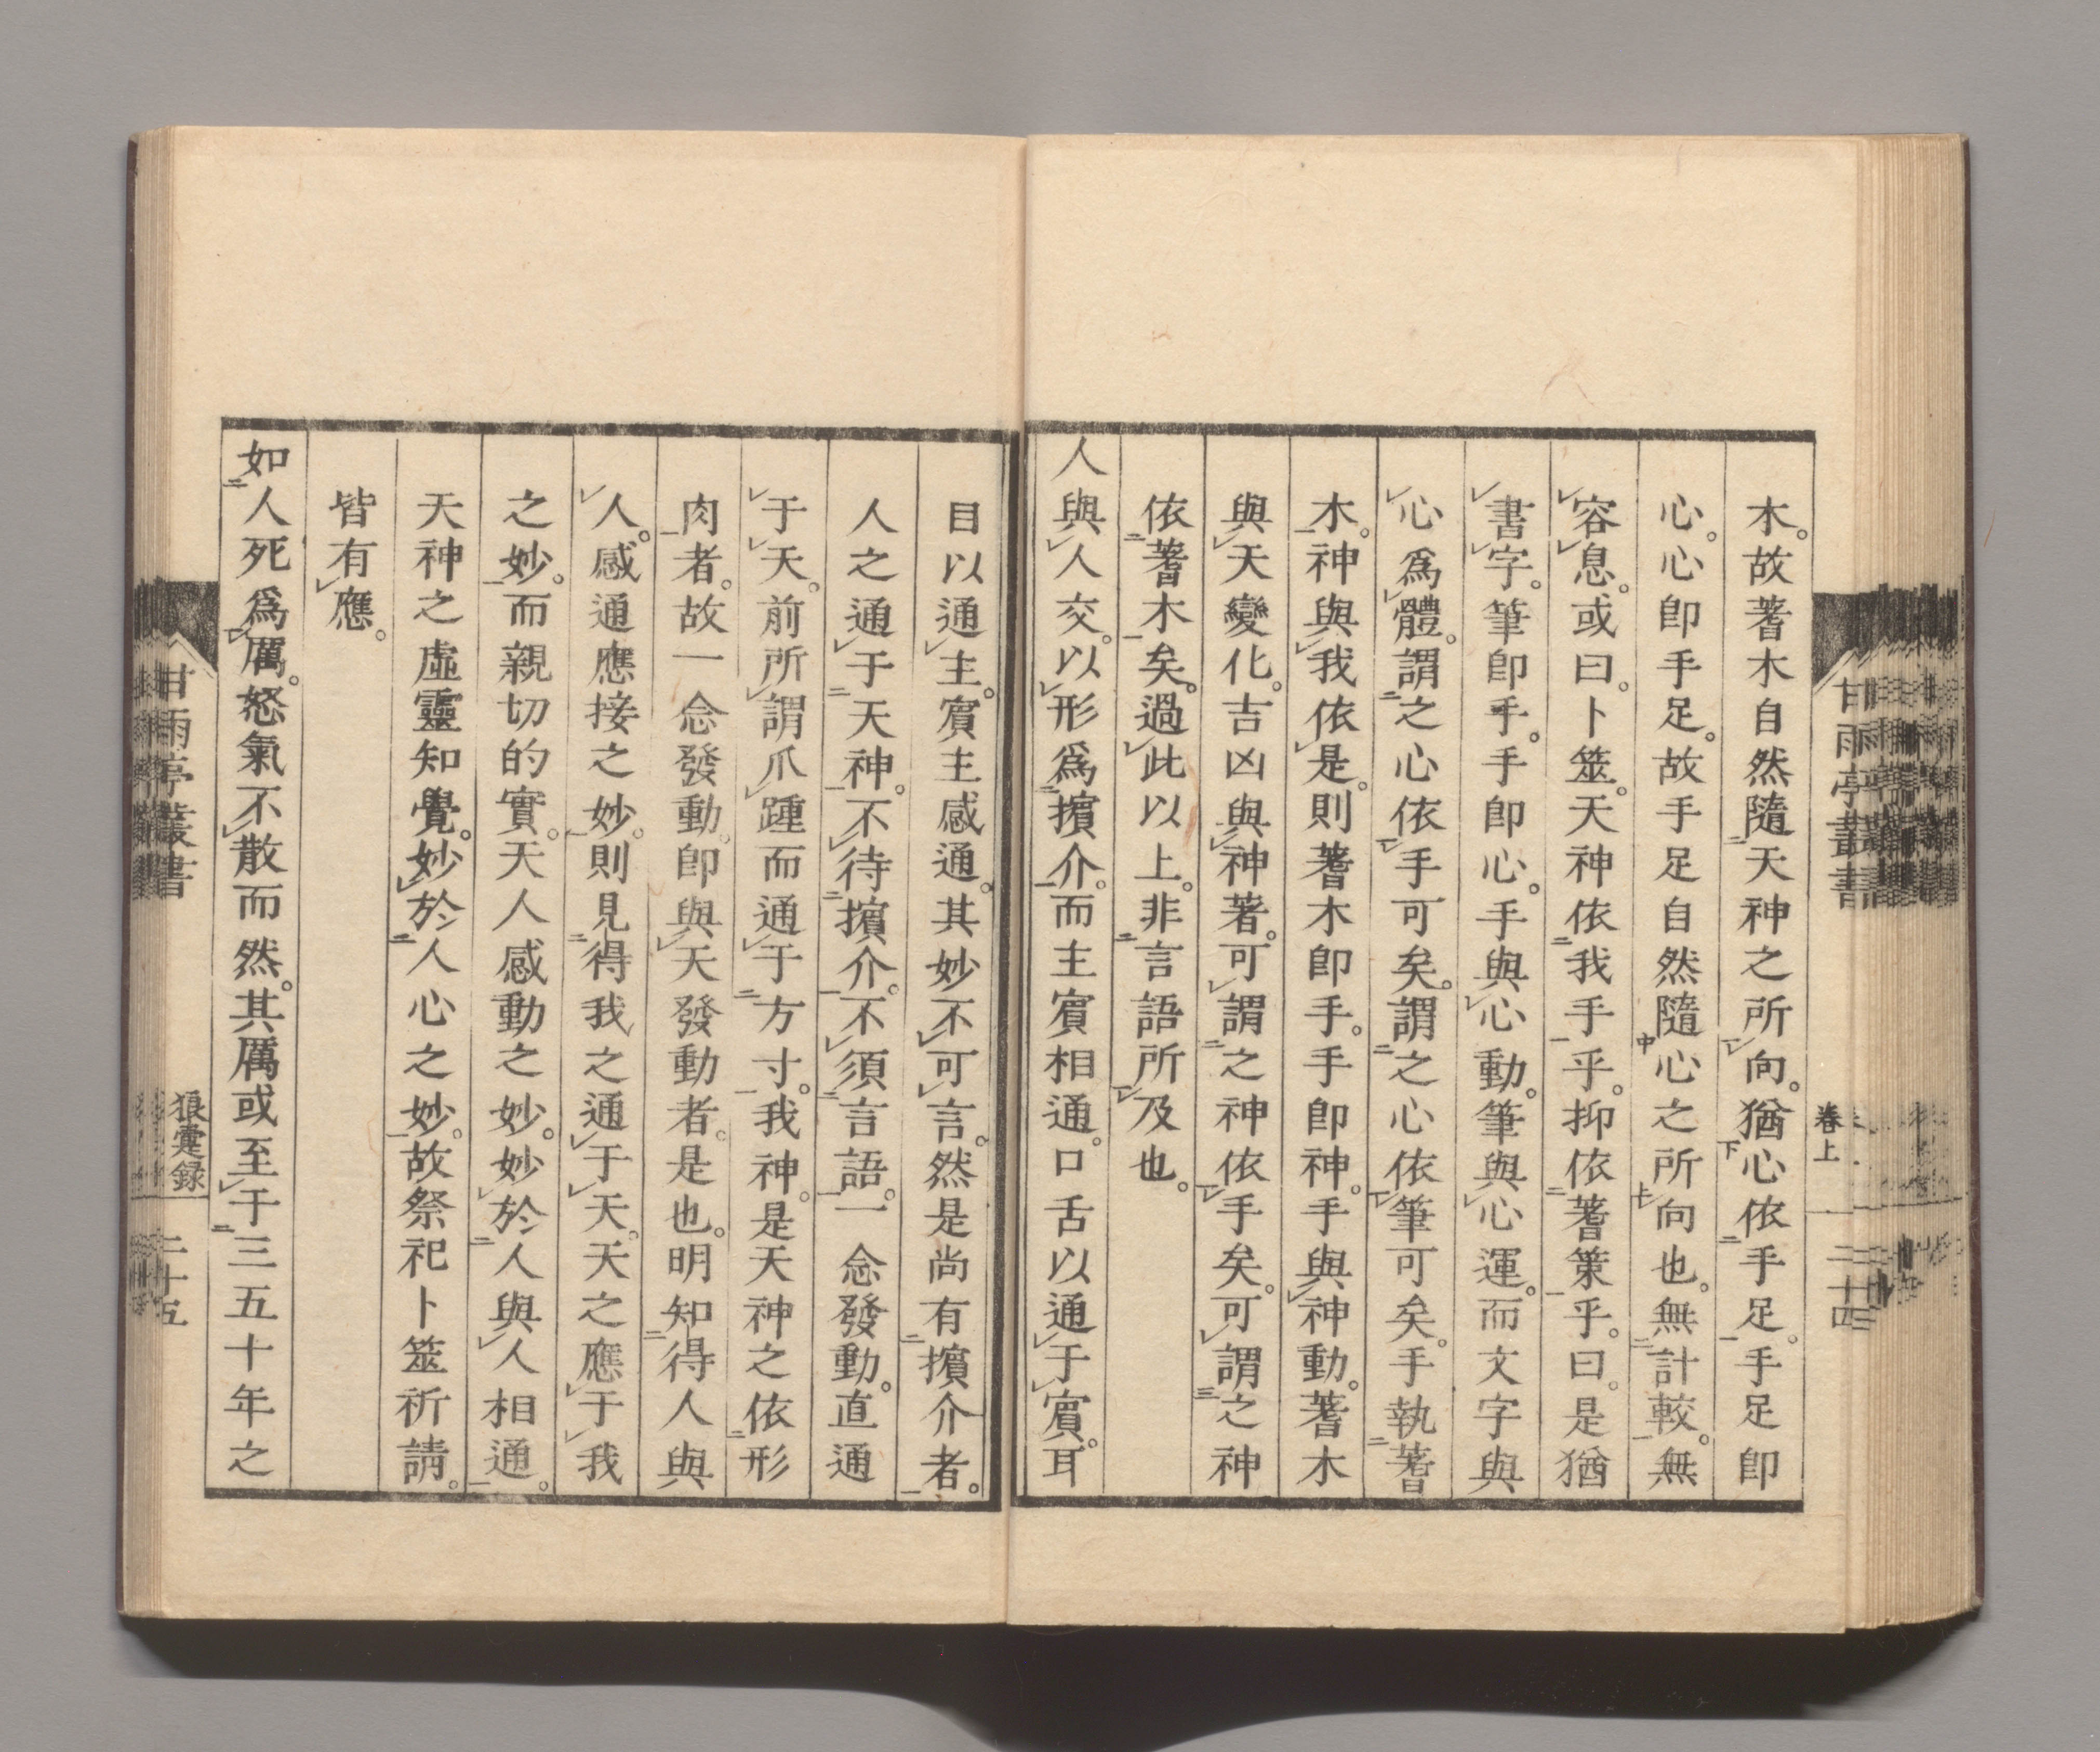 木。故蓍木自然隨天神之所向。猶心依手足。手足即
心。心即手足。故手足自然隨心之所向也。無計較。無
容息。或曰。卜筮。天神依我手乎。抑依蓍策乎。曰。是猶
書字。筆即手。手即心。手與心動。筆與心運。而文字與
心爲體。謂之心依手可矣。謂之心依筆可矣。手執蓍
木。神與我依是。則蓍木即手。手即神。手與神動。蓍木
與天變化。吉凶與神著。可謂之神依手矣。可謂之神
依蓍木矣。過此以上。非言語所及也。
人與人交。以形爲擯介。而主賓相通。口舌以通于賓。耳
目以通主。賓主感通。其妙不可言。然是尚有擯介者。
人之通于天神。不待擯介。不須言語。一念發動。直通
于天。前所謂爪踵而通于方寸。我神。是天神之依形
肉者。故一念發動。即與天發動者。是也。明知得人與
人。感通應接之妙。則見得我之通于天。天之應于我
之妙。而親切的實。天人感動之妙。妙於人與人相通。
天神之虛靈知覺。妙於人心之妙。故祭祀卜筮祈請。
皆有應。
如人死爲厲。怒氣不散而然。其厲或至于三五十年之
甘雨亭叢書
卷上
二十四
甘雨亭叢書
狼疐録
二十五